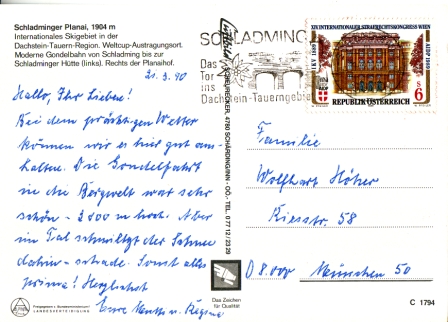 Schladminger Planai, 1904 m
Internationales Skigebiet in der
Dachstein-Tauern-Region. Weltcup-Austragungsort.
Moderne Gondelbahn von Schladming bis zur
Schladminger Hütte (links). Rechts der Planaihof.
21.3.90
Hallo, Ihr Lieben!
Bei dem prächtigen Wetter
können wir es hier gut aus-
halten. Die Gondelfahrt
in die Bergwelt war sehr
schön - 2000 m hoch. Aber
im Tal schmilzt der Schnee
dahin - schade. Sonst alles
prima! Herzlichst
Eure u.
LANDESVERTEIDIGUNG
SCHEURECKER, 4780 SCHÄRDING/INN - OÖ., TEL. 07712/2329
Das Zeichen
für Qualität
SCHLADMING
Das
Tor
ins
Dachstein-Tauerngebiet
XIV INTERNATIONALER STRAFRECHTSKONGRESS WIEN
IKV 1889
AIDP 1989
S 6
REPUBLIK ÖSTERREICH
Familie
Wolfhart Höher
Kiesstr. 58
D 8000 München 50
C 1794